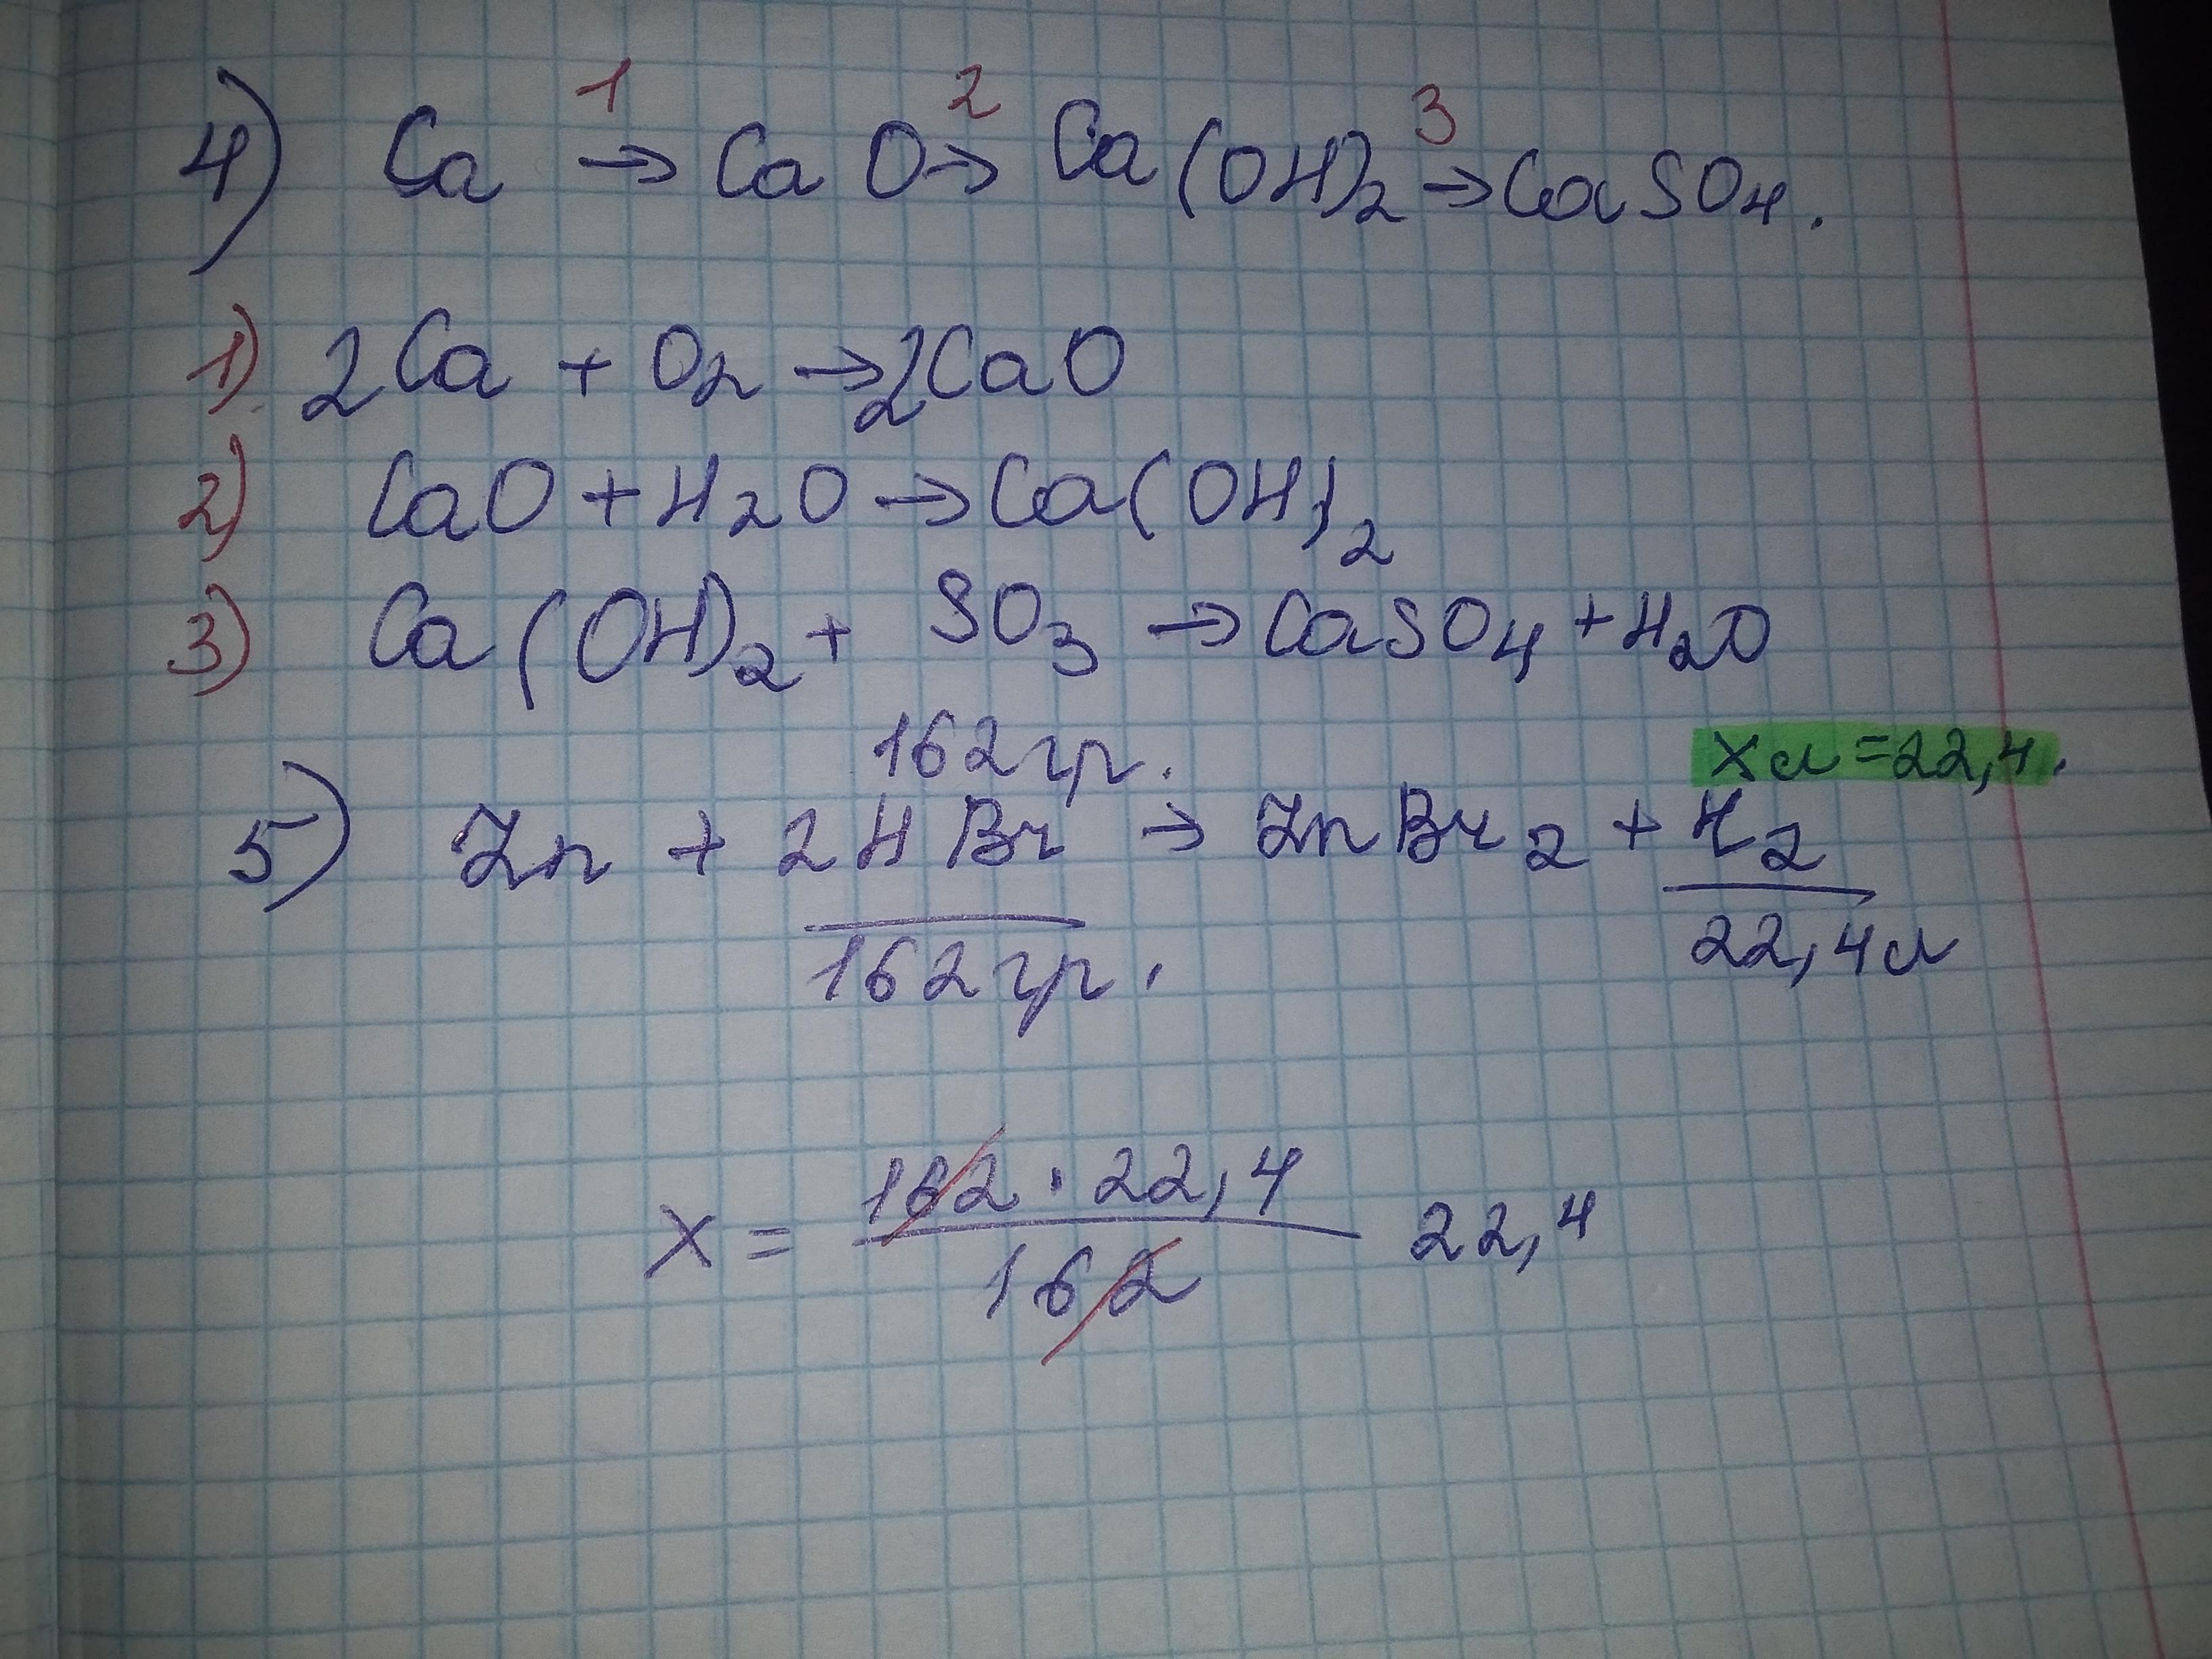 4) Ca →¹ CaO →² Ca(OH)₂ →³ CaSO₄.
1) 2Ca + O₂ → 2CaO
2) CaO + H₂O → Ca(OH)₂
3) Ca(OH)₂ + SO₃ → CaSO₄ + H₂O
162 гр. xл = 22,4.
5) Zn + 2HBr → ZnBr₂ + H₂
162 гр. 22,4 л
162 · 22,4
x = 22,4
162